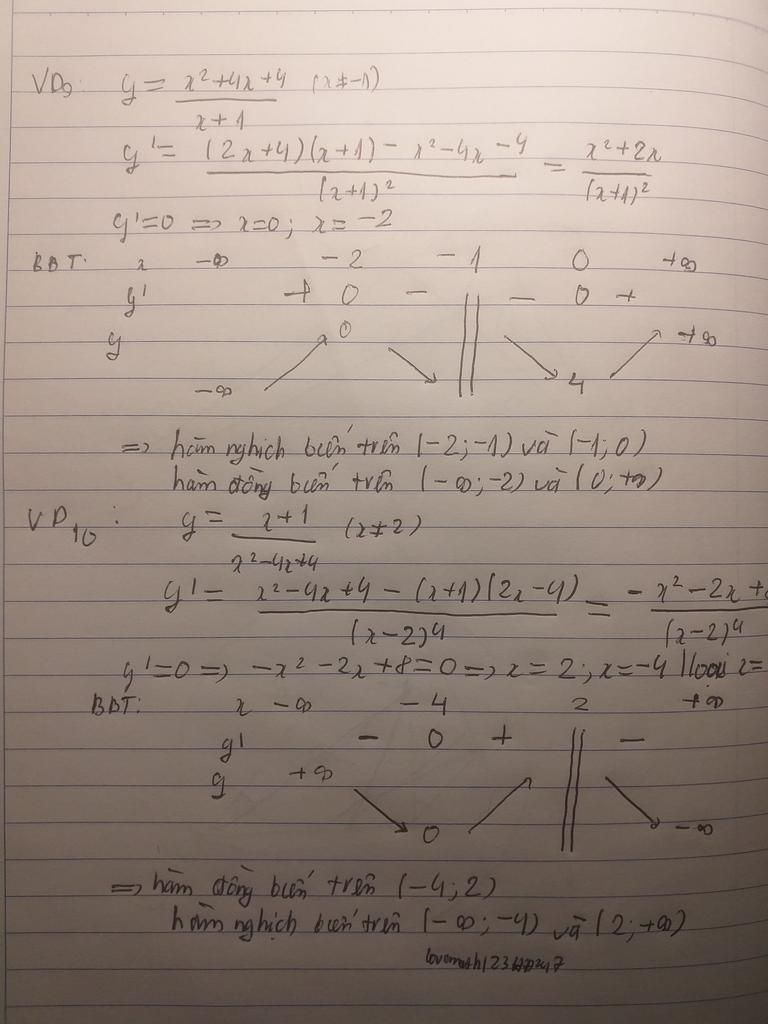 VD9: y = x²+4x+4 / x+1 (x≠-1)
y' = (2x+4)(x+1) - x²-4x-4 / (x+1)² = x²+2x / (x+1)²
y'=0 => x=0; x=-2
BBT: x -∞ -2 -1 0 +∞
y' + 0 - || - 0 +
y -∞ ↗ 0 ↘ || ↘ 4 ↗ +∞
=> hàm nghịch biến trên (-2;-1) và (-1;0)
hàm đồng biến trên (-∞;-2) và (0;+∞)
VD10: y = x+1 / x²-4x+4 (x≠2)
y' = x²-4x+4 - (x+1)(2x-4) / (x-2)⁴ = -x²-2x+ / (x-2)⁴
y'=0 => -x²-2x+8=0 => x=2; x=-4 (loại x=
BBT: x -∞ -4 2 +∞
y' - 0 + || -
y +∞ ↘ 0 ↗ || ↘ -∞
=> hàm đồng biến trên (-4;2)
hàm nghịch biến trên (-∞;-4) và (2;+∞)